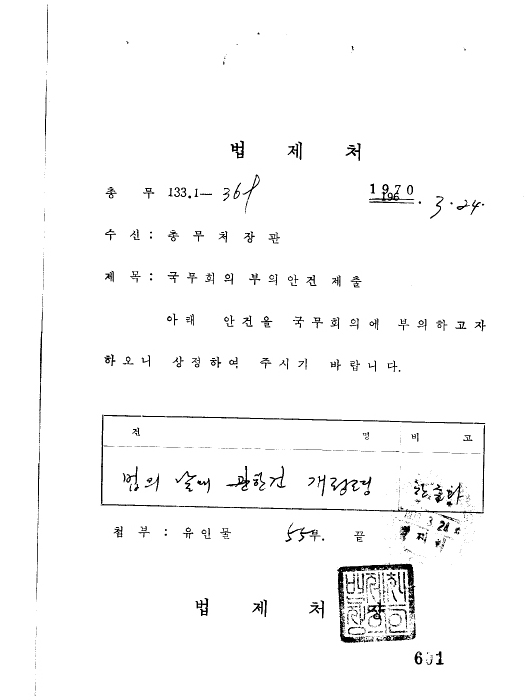 법 제 처
총 무 133.1— 369 1970 196 . 3 . 24.
수 신 : 총 무 처 장 관
제 목 : 국무회의 부의안건 제출
아래 안건을 국무회의에 부의하고자
하오니 상정하여 주시기 바랍니다.
건 명 비 고
법의 날에 관한건 개정령
첨 부 : 유인물 55부. 끝
법 제 처 장
601